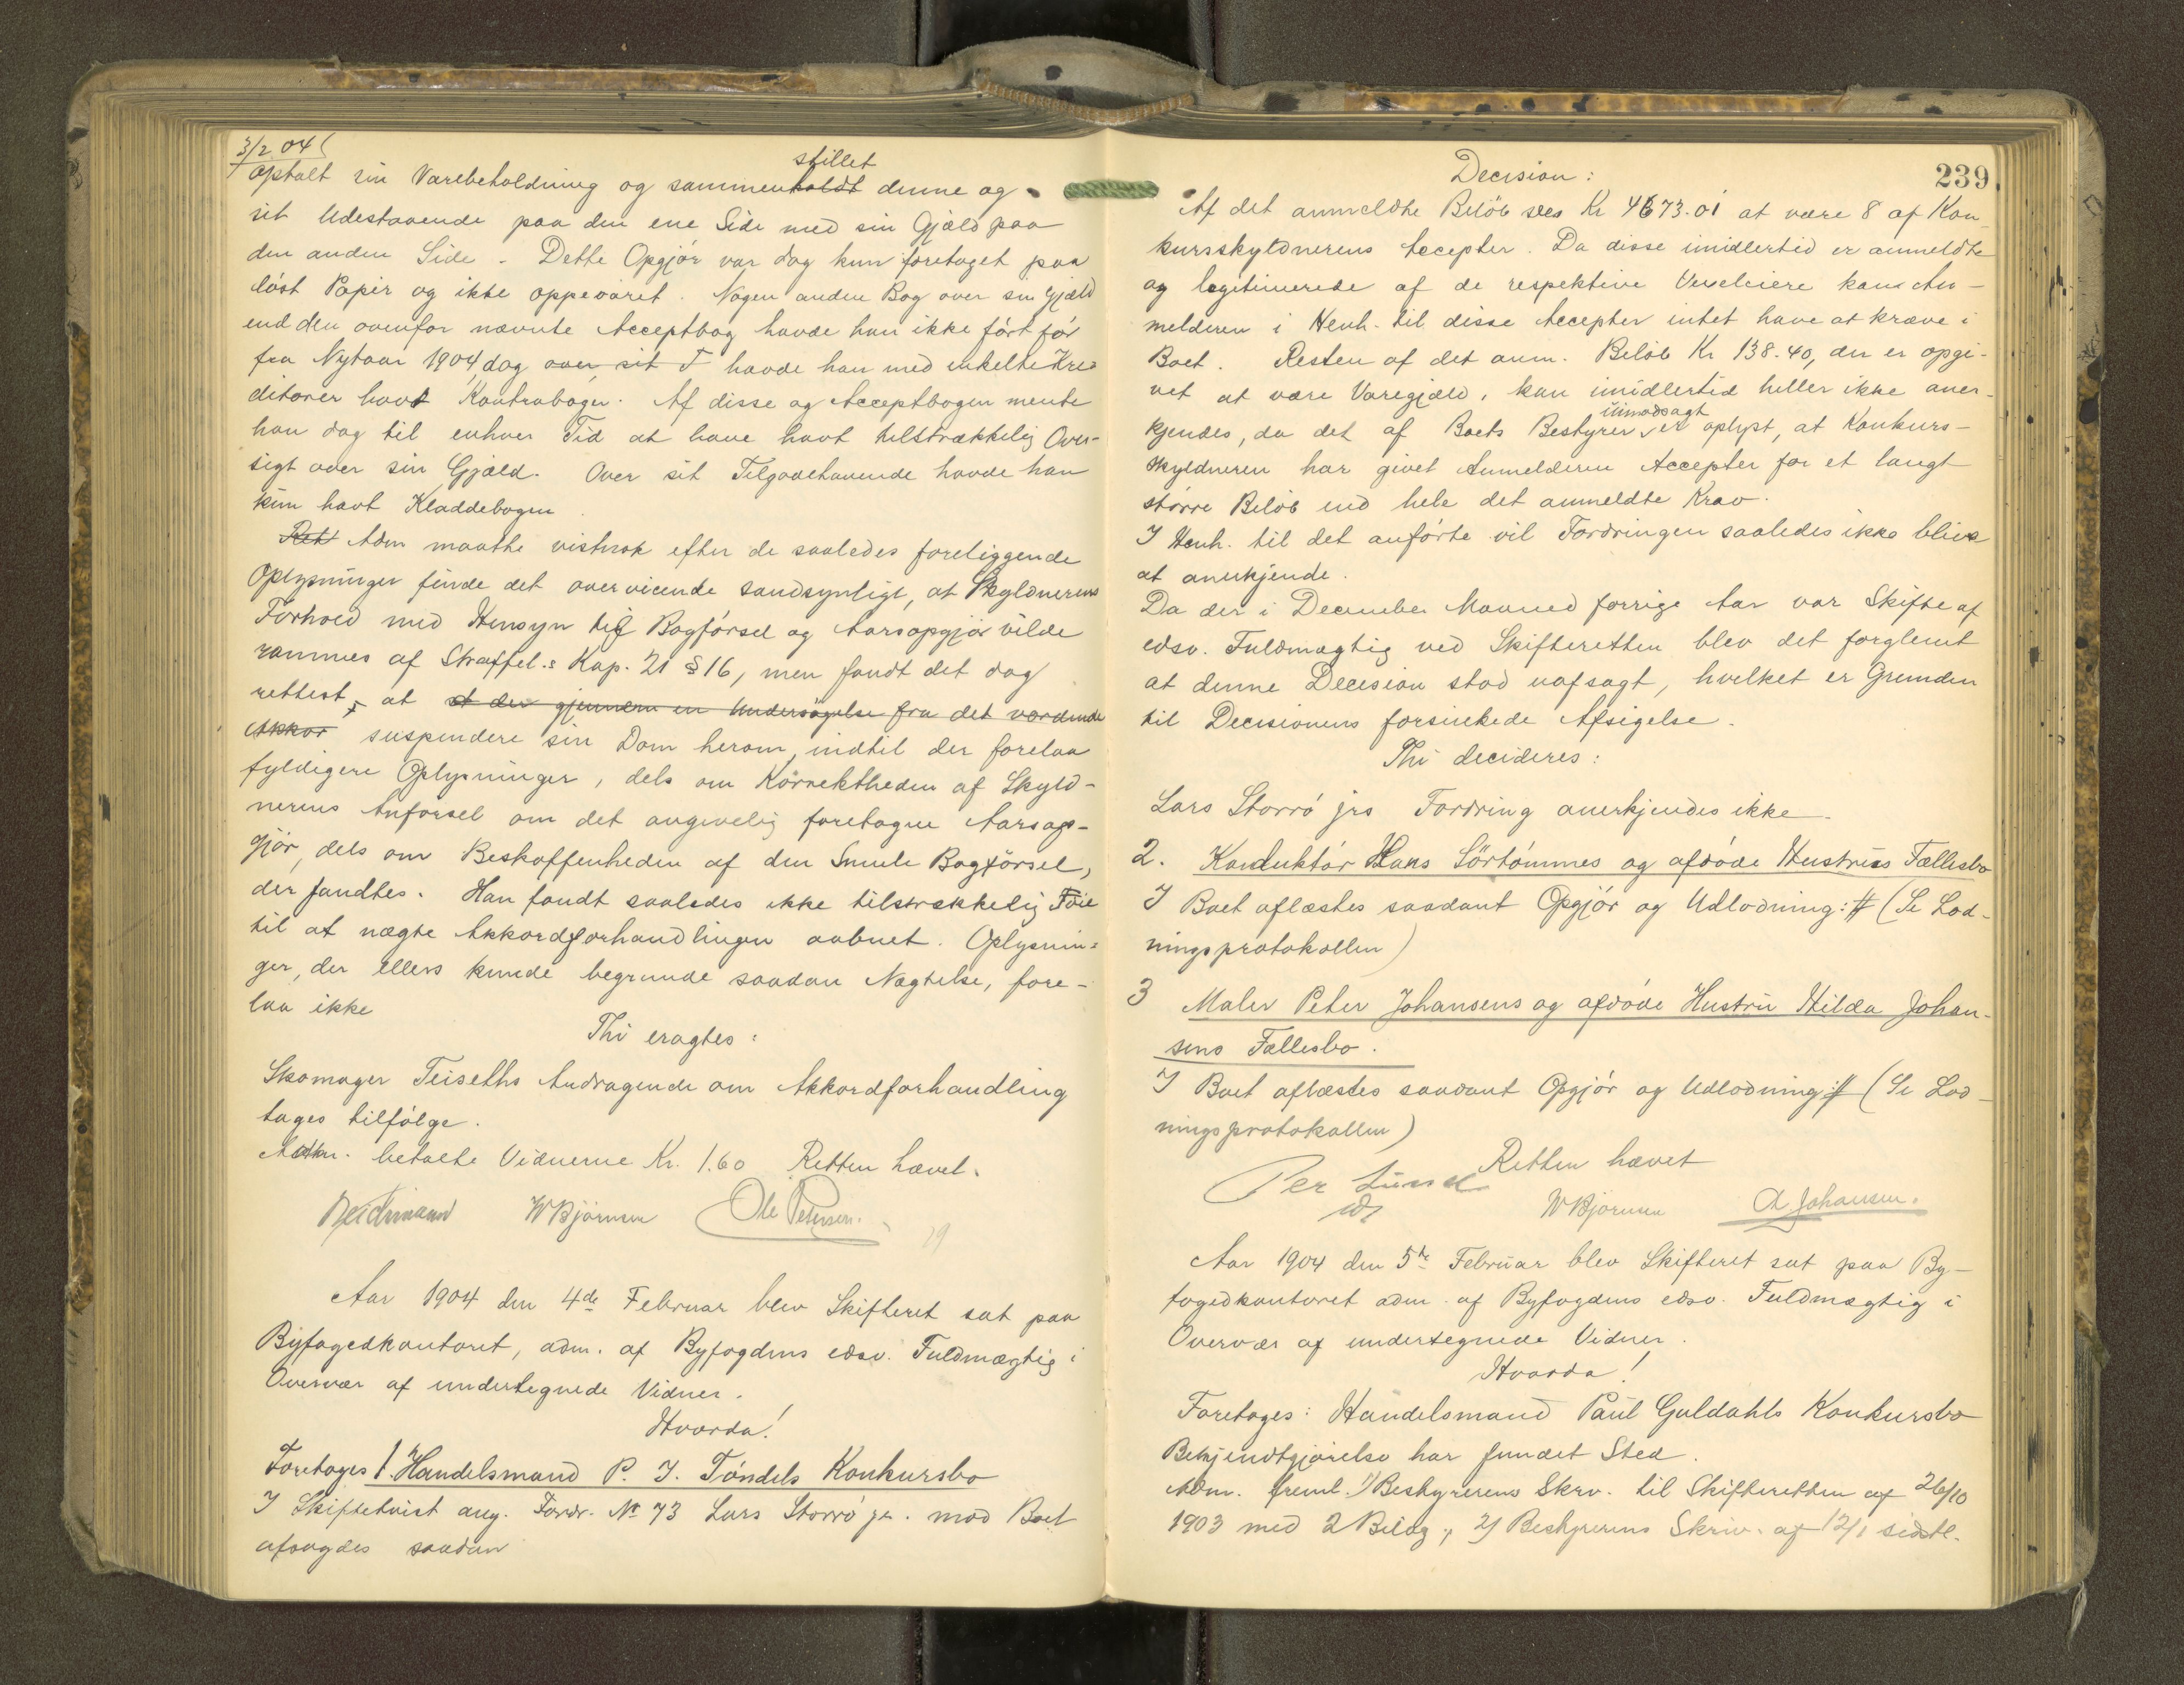 3/2 04
optalt sin Varebeholdning og sammenholdt stillet denne og
sit Udestaaende paa den ene Side med sin Gjæld paa
den anden Side - Dette Opgjør var dog kun foretaget paa
løst Papir og ikke oppevaret. Nogen anden Bog over sin Gjæld
end den ovenfor nævnte Acceptbog havde han ikke ført før
fra Nytaar 1904, dog over sit T havde han med enkelte Kre-
ditorer havt Kontrabøger. Af disse og Acceptbogen mente
han dog til enhver Tid at have havt tilstrækkelig Over-
sigt over sin Gjæld. Over sit Tilgodehavende havde han
kun havt Kladdebogen
Ret Adm maatte vistnok efter de saaledes foreliggende
Oplysninger finde det overveiende sandsynligt, at Skyldnerens
Forhold med Hensyn til Bogførsel og Aarsopgjør vilde
rammes af Straffel.s Kap. 21 § 16, men fandt det dog
rettest, at at der gjennem en Undersøgelse fra det vordende
Akkor suspendere sin Dom herom, indtil der forelaa
fyldigere Oplysninger, dels om Korrektheden af Skyld-
nerens Anførsel om det angivelig foretagne Aarsop-
gjør, dels om Beskaffenheden af den Smule Bogførsel,
der fandtes. Han fandt saaledes ikke tilstrækkelig Føie
til at nægte Akkordforhandlingen aabnet. Oplysnin-
ger, der ellers kunde begrunde saadan Nægtelse, fore-
laa ikke
Thi eragtes:
Skomager Teiseths Andragende om Akkordforhandling
tages tilfølge.
Adm. betalte Vidnerne Kr. 1.60 Retten hævet.
WBjørnsen Ole Petersen.
Aar 1904 den 4de Februar blev Skifteret sat paa
Byfogedkontoret, adm. af Byfogdens edsv. Fuldmægtig i
Overvær af undertegnede Vidner.
Hvorda!
Foretages 1. Handelsmand P. J. Tøndels Konkursbo
I Skiftetvist ang. Fordr. No 73 Lars Storrø jr. mod Boet
afsagdes saadan
239
Decision:
Af det anmeldte Beløb sees Kr 4673.01 at være 8 af Kon
kursskyldnerens Accepter. Da disse imidlertid er anmeldte
og legitimerede af de respektive Vexeleiere kan An-
melderen i Henh. til disse Accepter intet have at kræve i
Boet. Resten af det anm. Beløb Kr 138.40, der er opgi-
vet at være Varegjæld, kan imidlertid heller ikke aner-
kjendes, da det af Boets Bestyrer uimodsagt er oplyst, at Konkurs-
skyldneren har givet Anmelderen Accepter for et langt
større Beløb end hele det anmeldte Krav.
I Henh. til det anførte vil Fordringen saaledes ikke blive
at anerkjende.
Da der i December Maaned forrige Aar var Skifte af
edsv. Fuldmægtig ved Skifteretten blev det forglemt
at denne Decision stod uafsagt, hvilket er Grunden
til Decisionens forsinkede Afsigelse.
Thi decideres:
Lars Storrø jrs Fordring anerkjendes ikke.
2. Konduktør Hans Sörtømmes og afdøde Hustrues Fællesbo
I Boet aflæstes saadant Opgjør og Udlodning: # (Se Lod-
ningsprotokollen)
3 Maler Peter Johansens og afdøde Hustru Hilda Johan-
sens Fællesbo.
I Boet aflæstes saadant Opgjør og Udlodning: # (Se Lod-
ningsprotokollen)
Retten hævet
Per Lund
WBjørnsen A Johansen.
Aar 1904 den 5te Februar blev Skifteret sat paa By-
fogedkontoret adm. af Byfogdens edsv. Fuldmægtig i
Overvær af undertegnede Vidner.
Hvorda!
Foretages: Handelsmand Paul Guldahls Konkursbo
Bekjendtgjørelse har fundet Sted.
Adm. freml. 1) Bestyrerens Skrv. til Skifteretten af 26/10
1903 med 2 Bilag, 2) Bestyrerens Skriv. af 12/1 sidstl.